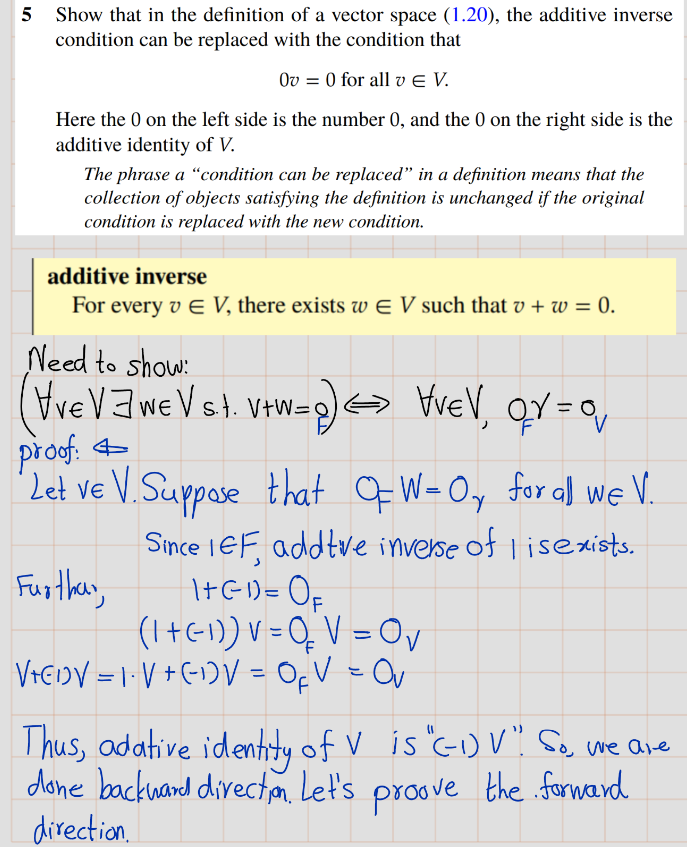 5 Show that in the definition of a vector space (1.20), the additive inverse
condition can be replaced with the condition that
0v = 0 for all v ∈ V.
Here the 0 on the left side is the number 0, and the 0 on the right side is the
additive identity of V.
The phrase a “condition can be replaced” in a definition means that the
collection of objects satisfying the definition is unchanged if the original
condition is replaced with the new condition.
additive inverse
For every v ∈ V, there exists w ∈ V such that v + w = 0.
Need to show:
(∀v∈V ∃ w∈V s.t. v+w=0_F) ⟺ ∀v∈V, 0_F v = 0_V
proof: ⇐
Let v∈ V. Suppose that 0_F w = 0_V for all w∈ V.
Since 1∈F, addtive inverse of 1 is exists.
Further, 1+(-1) = 0_F
(1+(-1)) v = 0_F v = 0_V
v+(-1)v = 1·v + (-1)v = 0_F v = 0_V
Thus, adative identity of v is "(-1) v". So, we are
done backward direction. Let's proove the forward
direction.